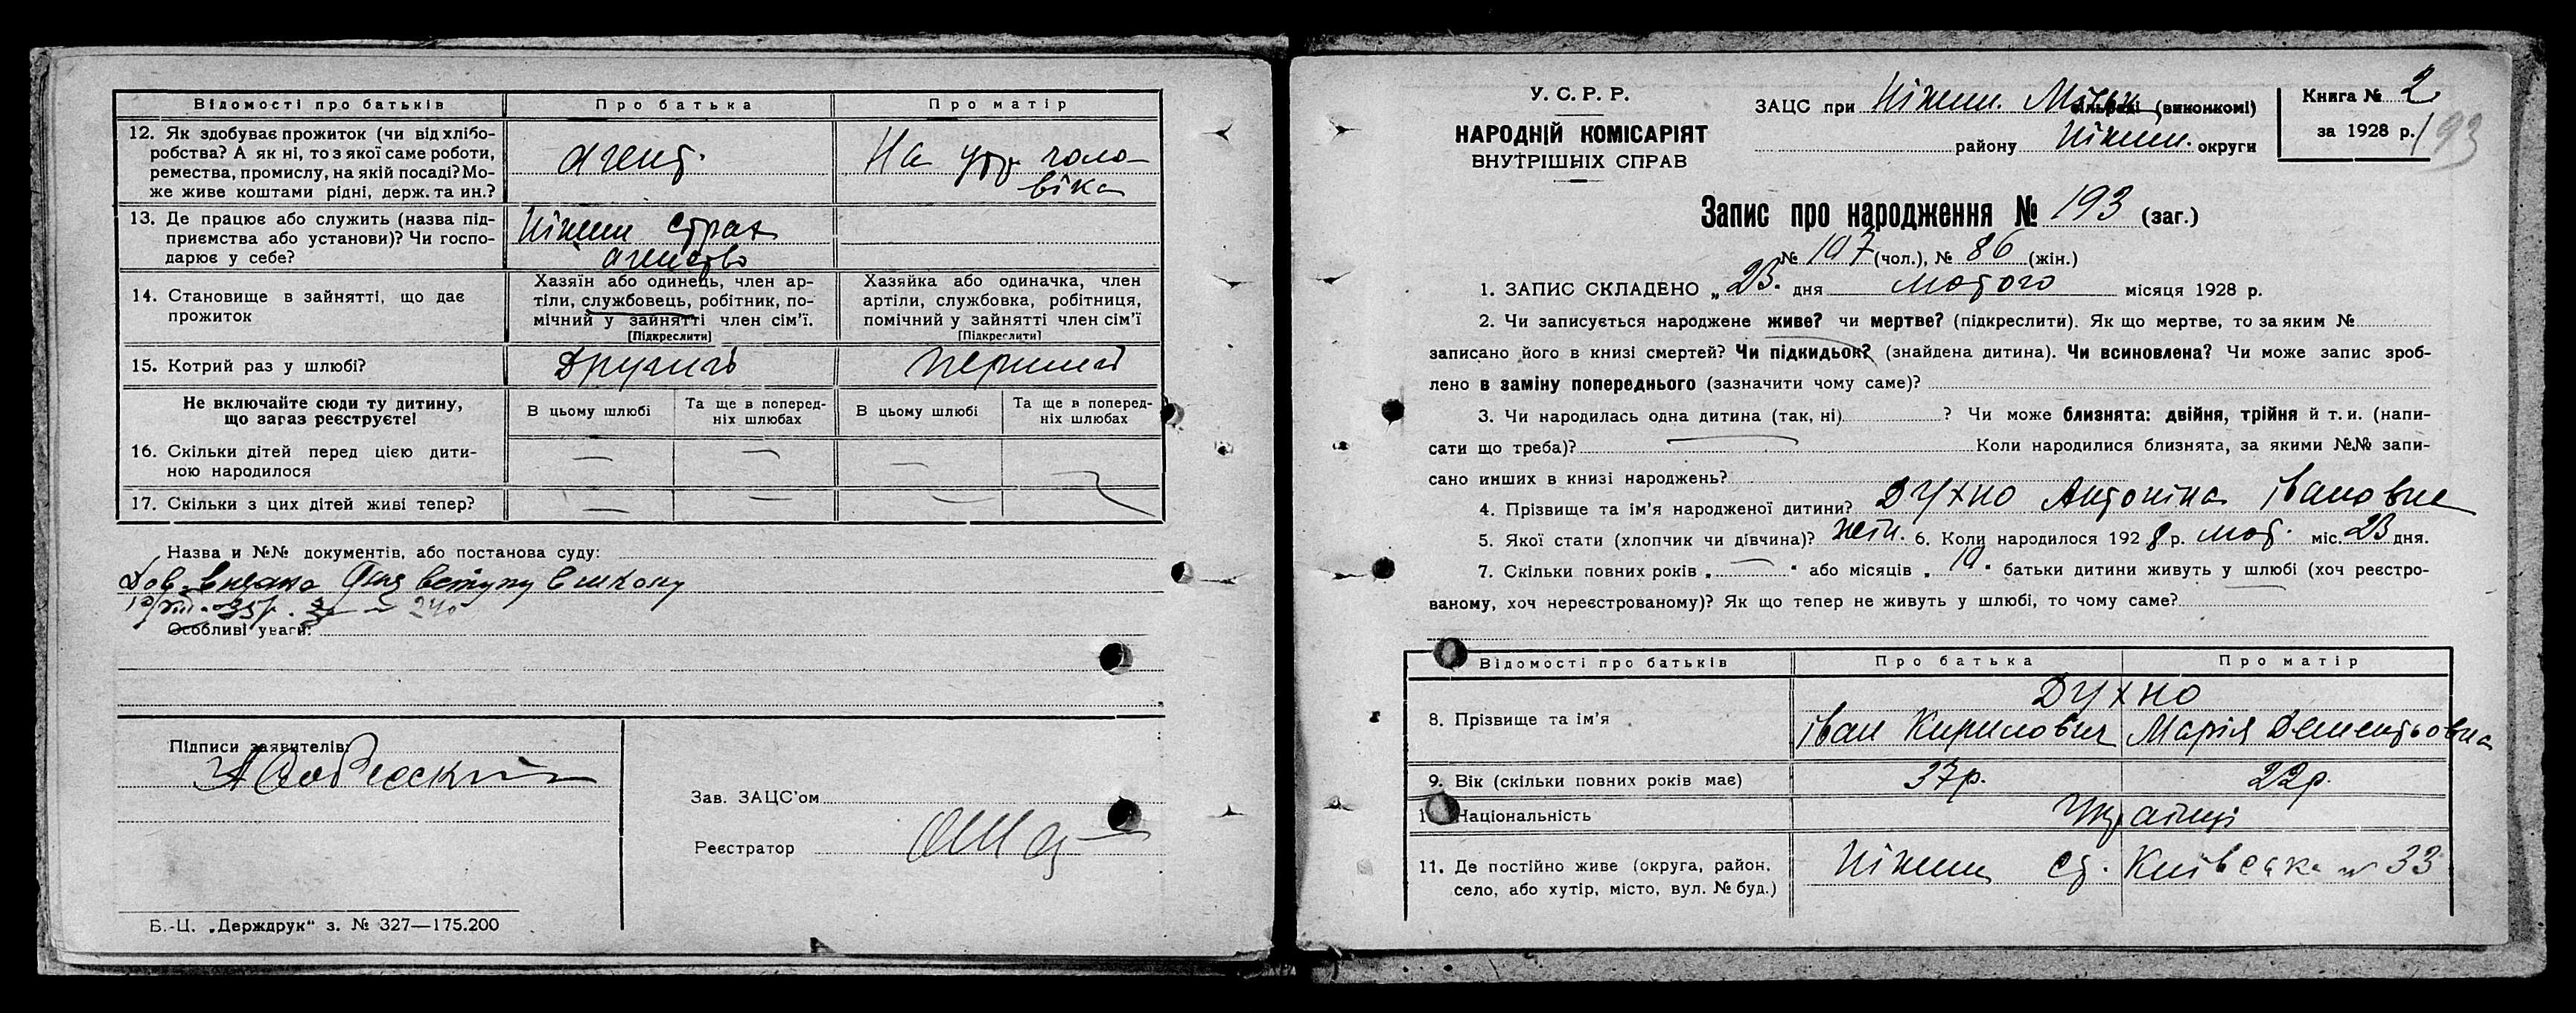 Відомості про батьків
Про батька
Про матір
12. Як здобуває прожиток (чи від хлібо-
робства? А як ні, то з якої саме роботи,
ремества, промислу, на якій посаді? Мо-
же живе коштами рідні, держ. та ин.?
агент.
На утр чоло-
віка
13. Де працює або служить (назва під-
приємства або установи)? Чи госпо-
дарює у себе?
Ніжин страх
агенство
14. Становище в зайнятті, що дає
прожиток
Хазяїн або одинець, член ар-
тіли, службовець, робітник, по-
мічний у зайнятті член сім'ї.
[Підкреслити]
Хазяйка або одиначка, член
артіли, службовка, робітниця,
помічний у зайнятті член сім'ї
[Підкреслити]
15. Котрий раз у шлюбі?
Другий
перший
Не включайте сюди ту дитину,
що зараз реєструєте!
В цьому шлюбі
Та ще в поперед-
ніх шлюбах
В цьому шлюбі
Та ще в поперед-
ніх шлюбах
16. Скільки дітей перед цією дити-
ною народилося
17. Скільки з цих дітей живі тепер?
Назва и №№ документів, або постанова суду:
Дов. видана для вступу в школу
35р.
Особливі уваги:
Підписи заявителів:
Зав. ЗАЦС'ом
Реєстратор
Б.-Ц. „Держдрук“ з. № 327—175.200
У. С. Р. Р.
НАРОДНІЙ КОМІСАРІЯТ
ВНУТРІШНІХ СПРАВ
ЗАЦС при Ніжин. Міськ сільраді (виконкомі)
району Ніжин. округи
Книга № 2
за 1928 р.
193
Запис про народження № 193 (заг.)
№ 107 (чол.), № 86 (жін.)
1. ЗАПИС СКЛАДЕНО „23. дня лютого місяця 1928 р.
2. Чи записується народжене живе? чи мертве? (підкреслити). Як що мертве, то за яким №
записано його в книзі смертей? Чи підкидьок? (знайдена дитина). Чи всиновлена? Чи може запис зроб-
лено в заміну попереднього (зазначити чому саме)?
3. Чи народилась одна дитина (так, ні)? Чи може близнята: двійня, трійня й т. и. (напи-
сати що треба)? Коли народилися близнята, за якими №№ запи-
сано инших в книзі народжень?
4. Прізвище та ім'я народженої дитини? Духно Антоніна Івановна
5. Якої стати (хлопчик чи дівчина)? жін. 6. Коли народилося 1928 р. лют. міс. 23 дня.
7. Скільки повних років „ “ або місяців „10“ батьки дитини живуть у шлюбі (хоч реєстро-
ваному, хоч нереєстрованому)? Як що тепер не живуть у шлюбі, то чому саме?
Відомості про батьків
Про батька
Про матір
8. Прізвище та ім'я
Духно
Іван Кирилович
Марія Дементьовна
9. Вік (скільки повних років має)
37р.
22р.
Національність
Українці
11. Де постійно живе (округа, район,
село, або хутір, місто, вул. № буд.)
Ніжин ст. Київська № 33